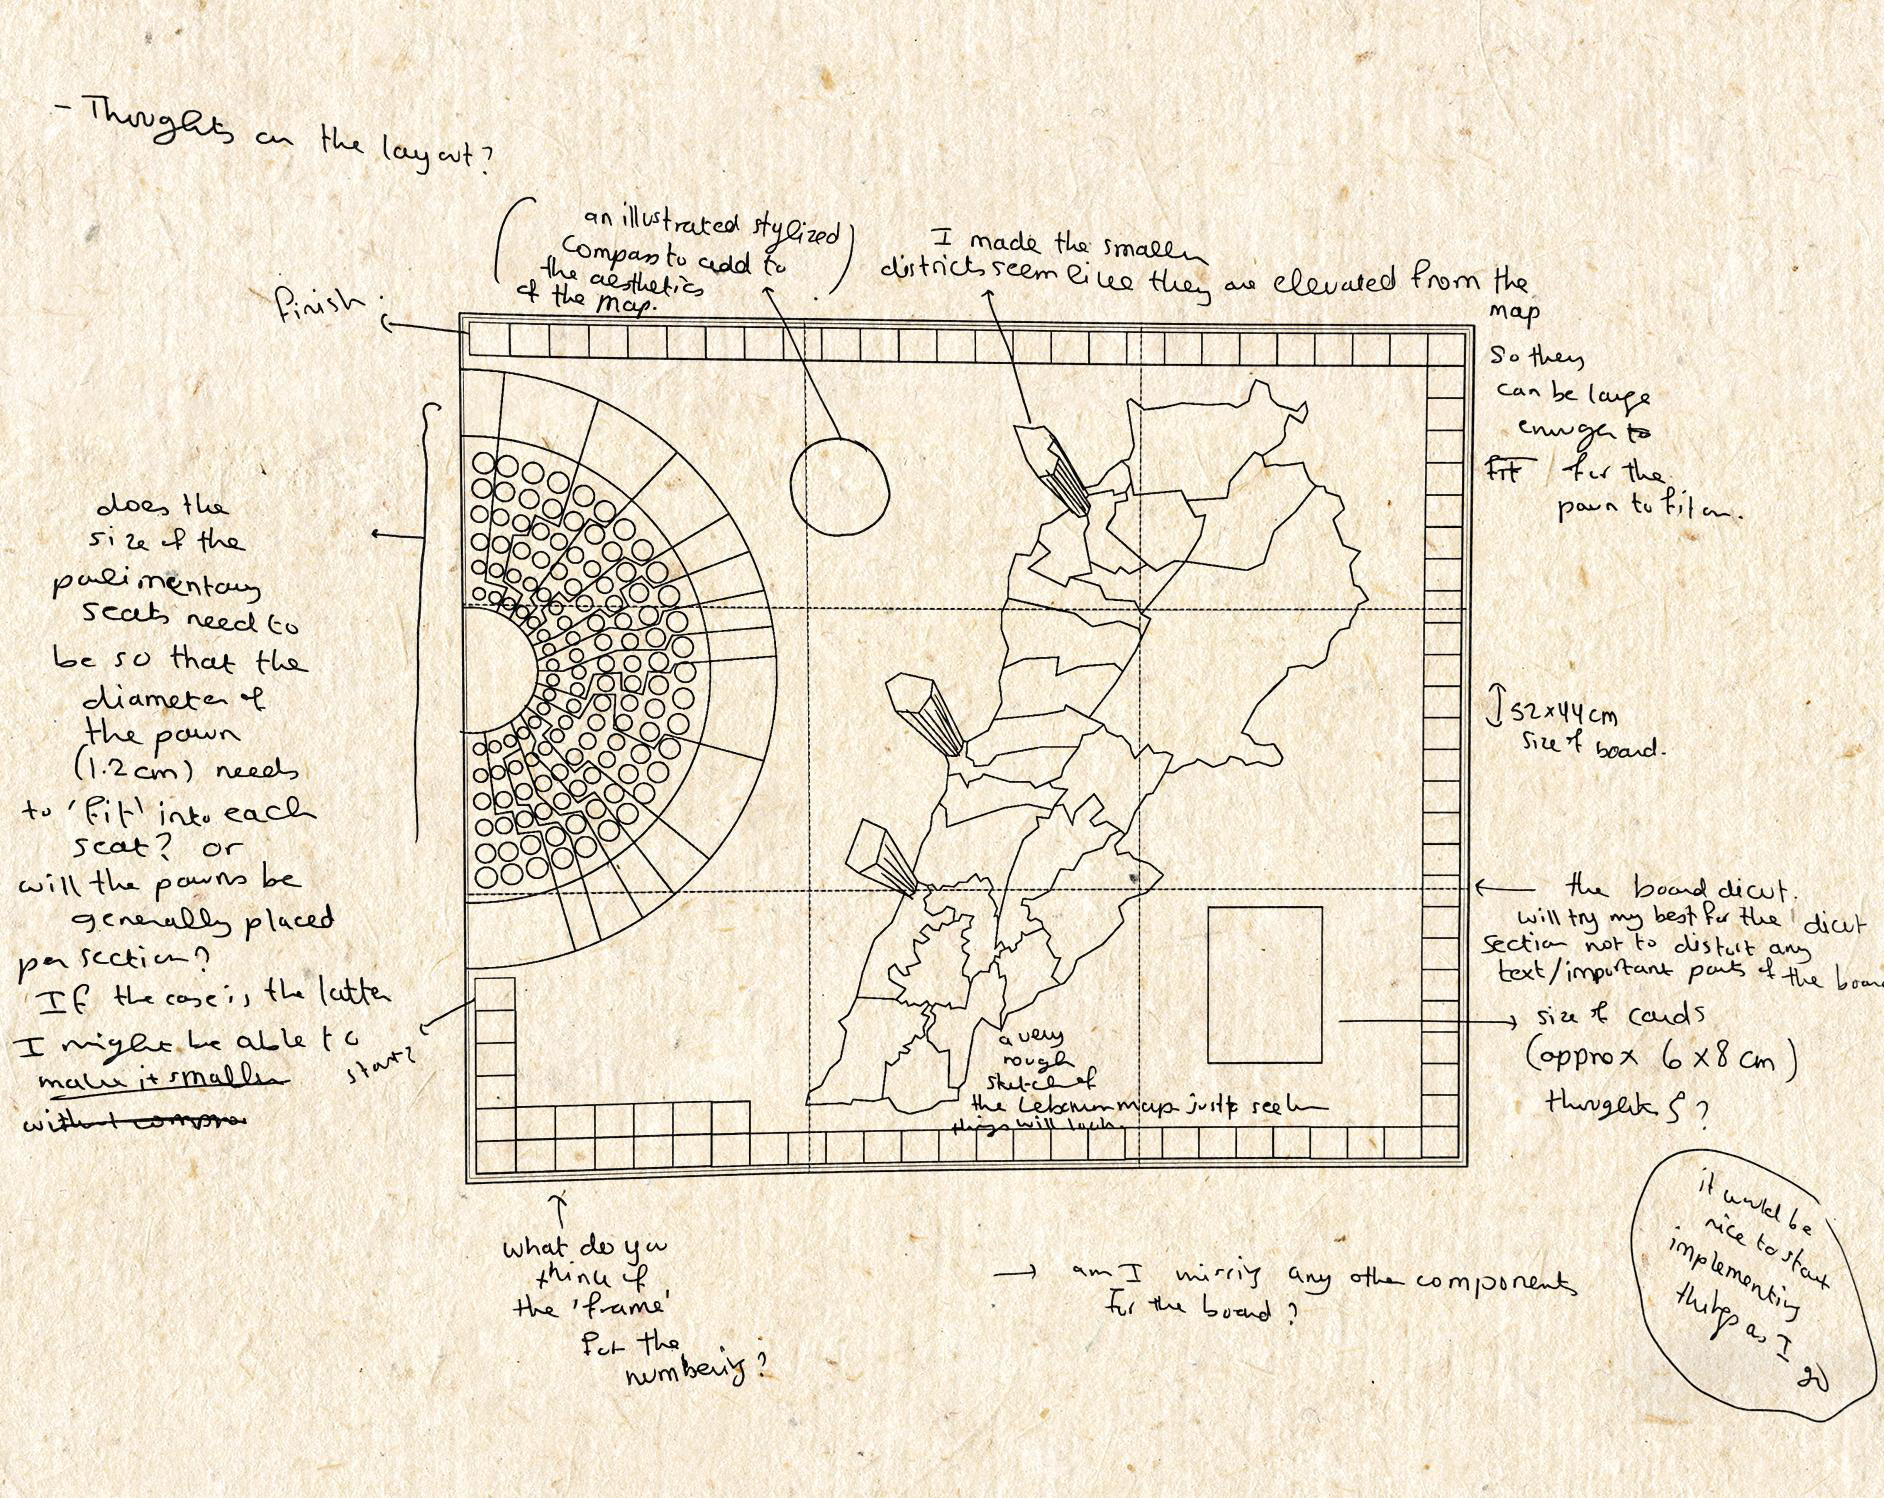 - Thoughts on the layout?
an illustrated stylized
compass to add to
the aesthetics
of the map.
I made the smaller
districts seem like they are elevated from the
map
so they
can be large
enough to
fit for the
pawn to fit on.
finish.
does the
size of the
parlimentary
seats need to
be so that the
diameter of
the pawn
(1.2cm) needs
to 'fit' into each
seat? or
will the pawns be
generally placed
per section?
If the case is the latter
I might be able to
make it smaller
without
start?
52x44cm
size of board.
the board dicut.
will try my best for the dicut
section not to distort any
text/important parts of the board
size of cards
(approx 6x8cm)
thoughts?
a very
rough
sketch of
the Lebanon map just to see how
things will look.
what do you
think of
the 'frame'
for the
numbering?
→ am I missing any other components
for the board?
it would be
nice to start
implementing
things as I
go